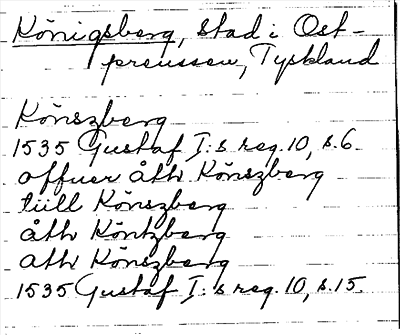 Königsberg, stad i Ost-
preussen, Tyskland
Könszberg
1535 Gustaf I:s reg. 10, s. 6.
offuer åth Könszberg
tiill Könszberg
åth Köntzberg
ath Könszberg
1535 Gustaf I:s reg. 10, s. 15.